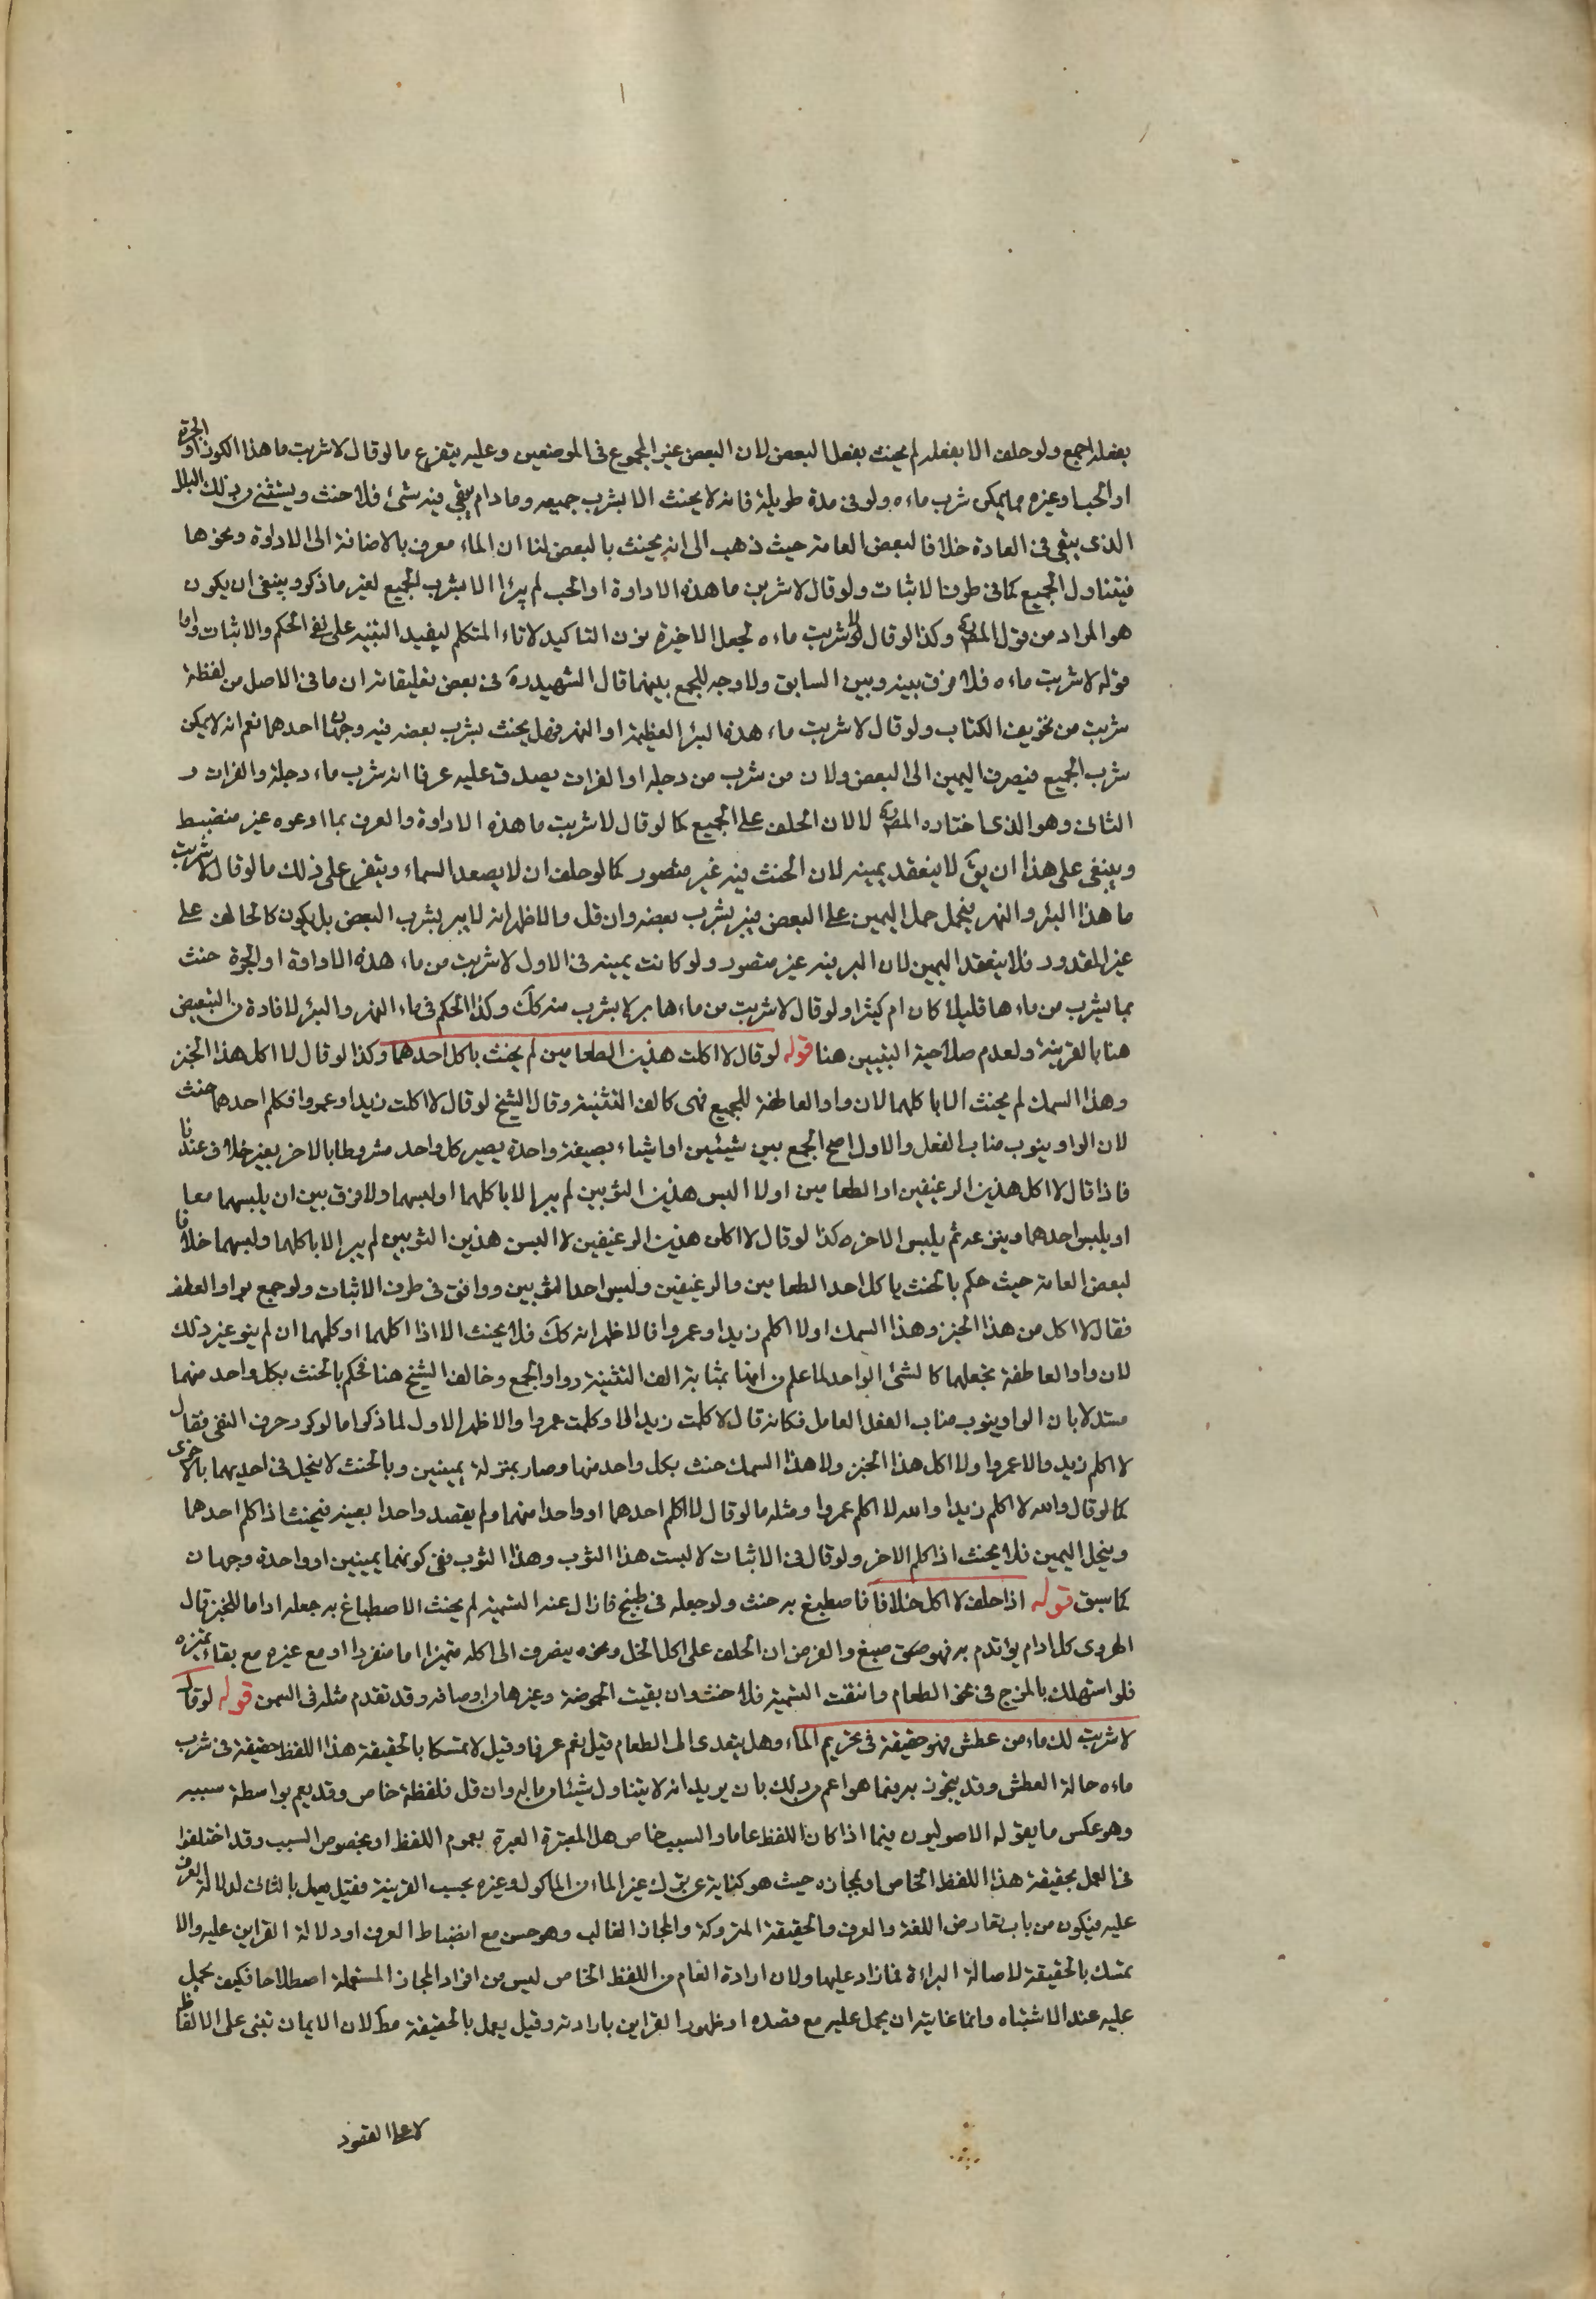 بفعله اجمع ولو حلف الا بفعله لم يحنث بفعل البعض لان البعض غير المجموع فى الموضعين وعليه يتفرع ما لو قال لاشربت ما هذا الكوز او الجرة
او الحب او غيره مما يمكن شرب ماءه ولو فى مدة طويلة فانه لا يحنث الا بشرب جميعه وما دام يبقى فيه شئ فلا حنث ويستثنى من ذلك البلل
الذى يبقى فى العادة خلافا لبعض العامة حيث ذهب الى انه يحنث بالبعض لنا ان الماء معرف بالاضافة الى الاداوة ونحوها
فيتناول الجميع كما فى طرف الاثبات ولو قال لاشربن ما هذه الاداوة او الحب لم يبرأ الا بشرب الجميع لغير ما ذكر وينبغى ان يكون
هو المراد من قول المصنف وكذا لو قال لاشربت ماءه لجعل الاخيرة نون التاكيد لا تاء المتكلم ليفيد التنبيه على نفى الحكم والاثبات واما
قوله لاشربت ماءه فلا فرق بينه وبين السابق ولا وجه للجمع بينهما قال الشهيد ره فى بعض تعليقاته ان ما فى الاصل من لفظة
شربت من تحريف الكتاب ولو قال لاشربت ماء هذه البئر العظيمة او النهر فهل يحنث بشرب بعضه فيه وجهان احدهما نعم انه لا يمكن
شرب الجميع فيصرف اليمين الى البعض ولان من شرب من دجلة او الفرات يصدق عليه عرفا انه شرب ماء دجلة والفرات و
الثانى وهو الذى اختاره المصنف لا لان الحلف على الجميع كما لو قال لاشربت ما هذه الاداوة والعرف بما ادعوه غير منضبط
وينبغى على هذا ان يق لا ينعقد يمينه لان الحنث فيه غير متصور كما لو حلف ان لا يصعد السماء ويتفرع على ذلك ما لو قال لاشربت
ما هذا البئر والنهر يحتمل حمل اليمين على البعض فيبر بشرب بعضه وان قل والاظهر انه لا يبر بشرب البعض بل يكون كالحالف على
غير المقدور فلا ينعقد اليمين لان البر فيه غير متصور ولو كانت يمينه فى الاول لاشربت من ماء هذه الاداوة او الجرة حنث
بما يشرب من ماءها قليلا كان ام كثيرا ولو قال لاشربت من ماءها بر بشرب منه كك وكذا الحكم فى ماء النهر والبئر لافادة من التبعيض
هنا بالقرينة ولعدم صلاحية التبيين هنا قوله لو قال لا اكلت هذين الطعامين لم يحنث باكل احدهما وكذا لو قال لا اكل هذا الخبز
وهذا السمك لم يحنث الا باكلهما لان واو العاطفة للجمع فهى كالف التثنية وقال الشيخ لو قال لا اكلت زيدا وعمروا فكلم احدهما حنث
لان الواو ينوب مناب الفعل والاول اصح الجمع بين شيئين او اشياء بصيغة واحدة يصير كل واحد مشروطا بالاخر بغير خلاف عندنا
فاذا قال لا اكل هذين الرغيفين او الطعامين او لا البس هذين الثوبين لم يبرا الا باكلهما او لبسهما ولا فرق بين ان يلبسهما معا
او يلبس احدهما وينزعه ثم يلبس الاخر وكذا لو قال لا اكلن هذين الرغيفين لا البسن هذين الثوبين لم يبرا الا باكلهما ولبسهما خلافا
لبعض العامة حيث حكم بالحنث باكل احد الطعامين والرغيفين ولبس احد الثوبين ووافق فى طرف الاثبات ولو جمع بواو العطف
فقال لا اكل من هذا الخبز وهذا السمك او لا اكلم زيدا وعمروا فالاظهر انه كك فلا يحنث الا اذا اكلهما او كلمهما ان لم ينو غير ذلك
لان واو العاطفة تجعلهما كالشئ الواحد لما علم من انها بمثابة الف التثنية وواو الجمع وخالف الشيخ هنا فحكم بالحنث بكل واحد منهما
مستدلا بان الواو ينوب مناب الفعل العامل فكانه قال لا كلمت زيدا ولا كلمت عمروا والاظهر الاول لما ذكر اما لو كرر حرف النفى فقال
لا اكلم زيد والا عمروا ولا اكل هذا الخبز ولا هذا السمك حنث بكل واحد منهما وصار بمنزلة يمينين وبالحنث لا ينحل فى احديهما بالاخرى
كما لو قال والله لا اكلم زيدا والله لا اكلم عمروا ومثله ما لو قال لا اكلم احدهما او واحدا منهما ولم يقصد واحدا بعينه فيحنث اذا كلم احدهما
وينحل اليمين فلا يحنث اذا كلم الاخر ولو قال فى الاثبات لا لبست هذا الثوب وهذا الثوب ففى كونهما يمينين او واحدة وجهان
كما سبق قوله اذا حلف لا اكل خلا فاصطبغ به حنث ولو جعله فى طبيخ فازال عنه التسمية لم يحنث الاصطباغ به جعله اداما للخبز قال
الهروى كل ادام يؤتدم به فهو صبغ والغرض ان الحلف على اكل الخل ونحوه ينصرف الى اكله متميزا اما منفردا او مع غيره مع بقاء تميزه
فلو استهلك بالمزج فى نحو الطعام وانتفت التسمية فلا حنث وان بقيت الحموضة وغيرها من اوصافه وقد تقدم مثله فى السمن قوله لو قال
لاشربت لك ماء من عطش فهو حقيقة فى تحريم الماء وهل يتعدى الى الطعام قيل نعم عرفا وقيل لا تمسكا بالحقيقة هذا اللفظ حقيقة فى شرب
ماءه حالة العطش وقد يتجوز به فيما هو اعم من ذلك بان يريد انه لا يتناول شيئا من ماله وان قل فلفظة خاص وقد يعم بواسطة سببه
وهو عكس ما يقوله الاصوليون فيما اذا كان اللفظ عاما والسبب خاص هل المعتبر العبرة بعموم اللفظ او بخصوص السبب وقد اختلفوا
فى العمل بحقيقة هذا اللفظ الخاص او بمجازه حيث هو كناية عن ترك غير الماء من الماكول وغيره بحسب القرينة فقيل يعمل بالثانى لدلالة العرف
عليه فيكون من باب تعارض اللغة والعرف والحقيقة المتروكة والمجاز الغالب وهو حسن مع انضباط العرف او دلالة القراين عليه والا
تمسك بالحقيقة لاصالة البراءة فما زاد عليها ولان ارادة العام من اللفظ الخاص ليس من افراد المجاز المستعملة اصطلاحا فكيف يحمل
عليه عند الاشتباه وانما غايته ان يحمل عليه مع قصده او ظهور القراين بارادته وقيل يعمل بالحقيقة مط لان الايمان تبنى على الالفاظ
لا على القصود